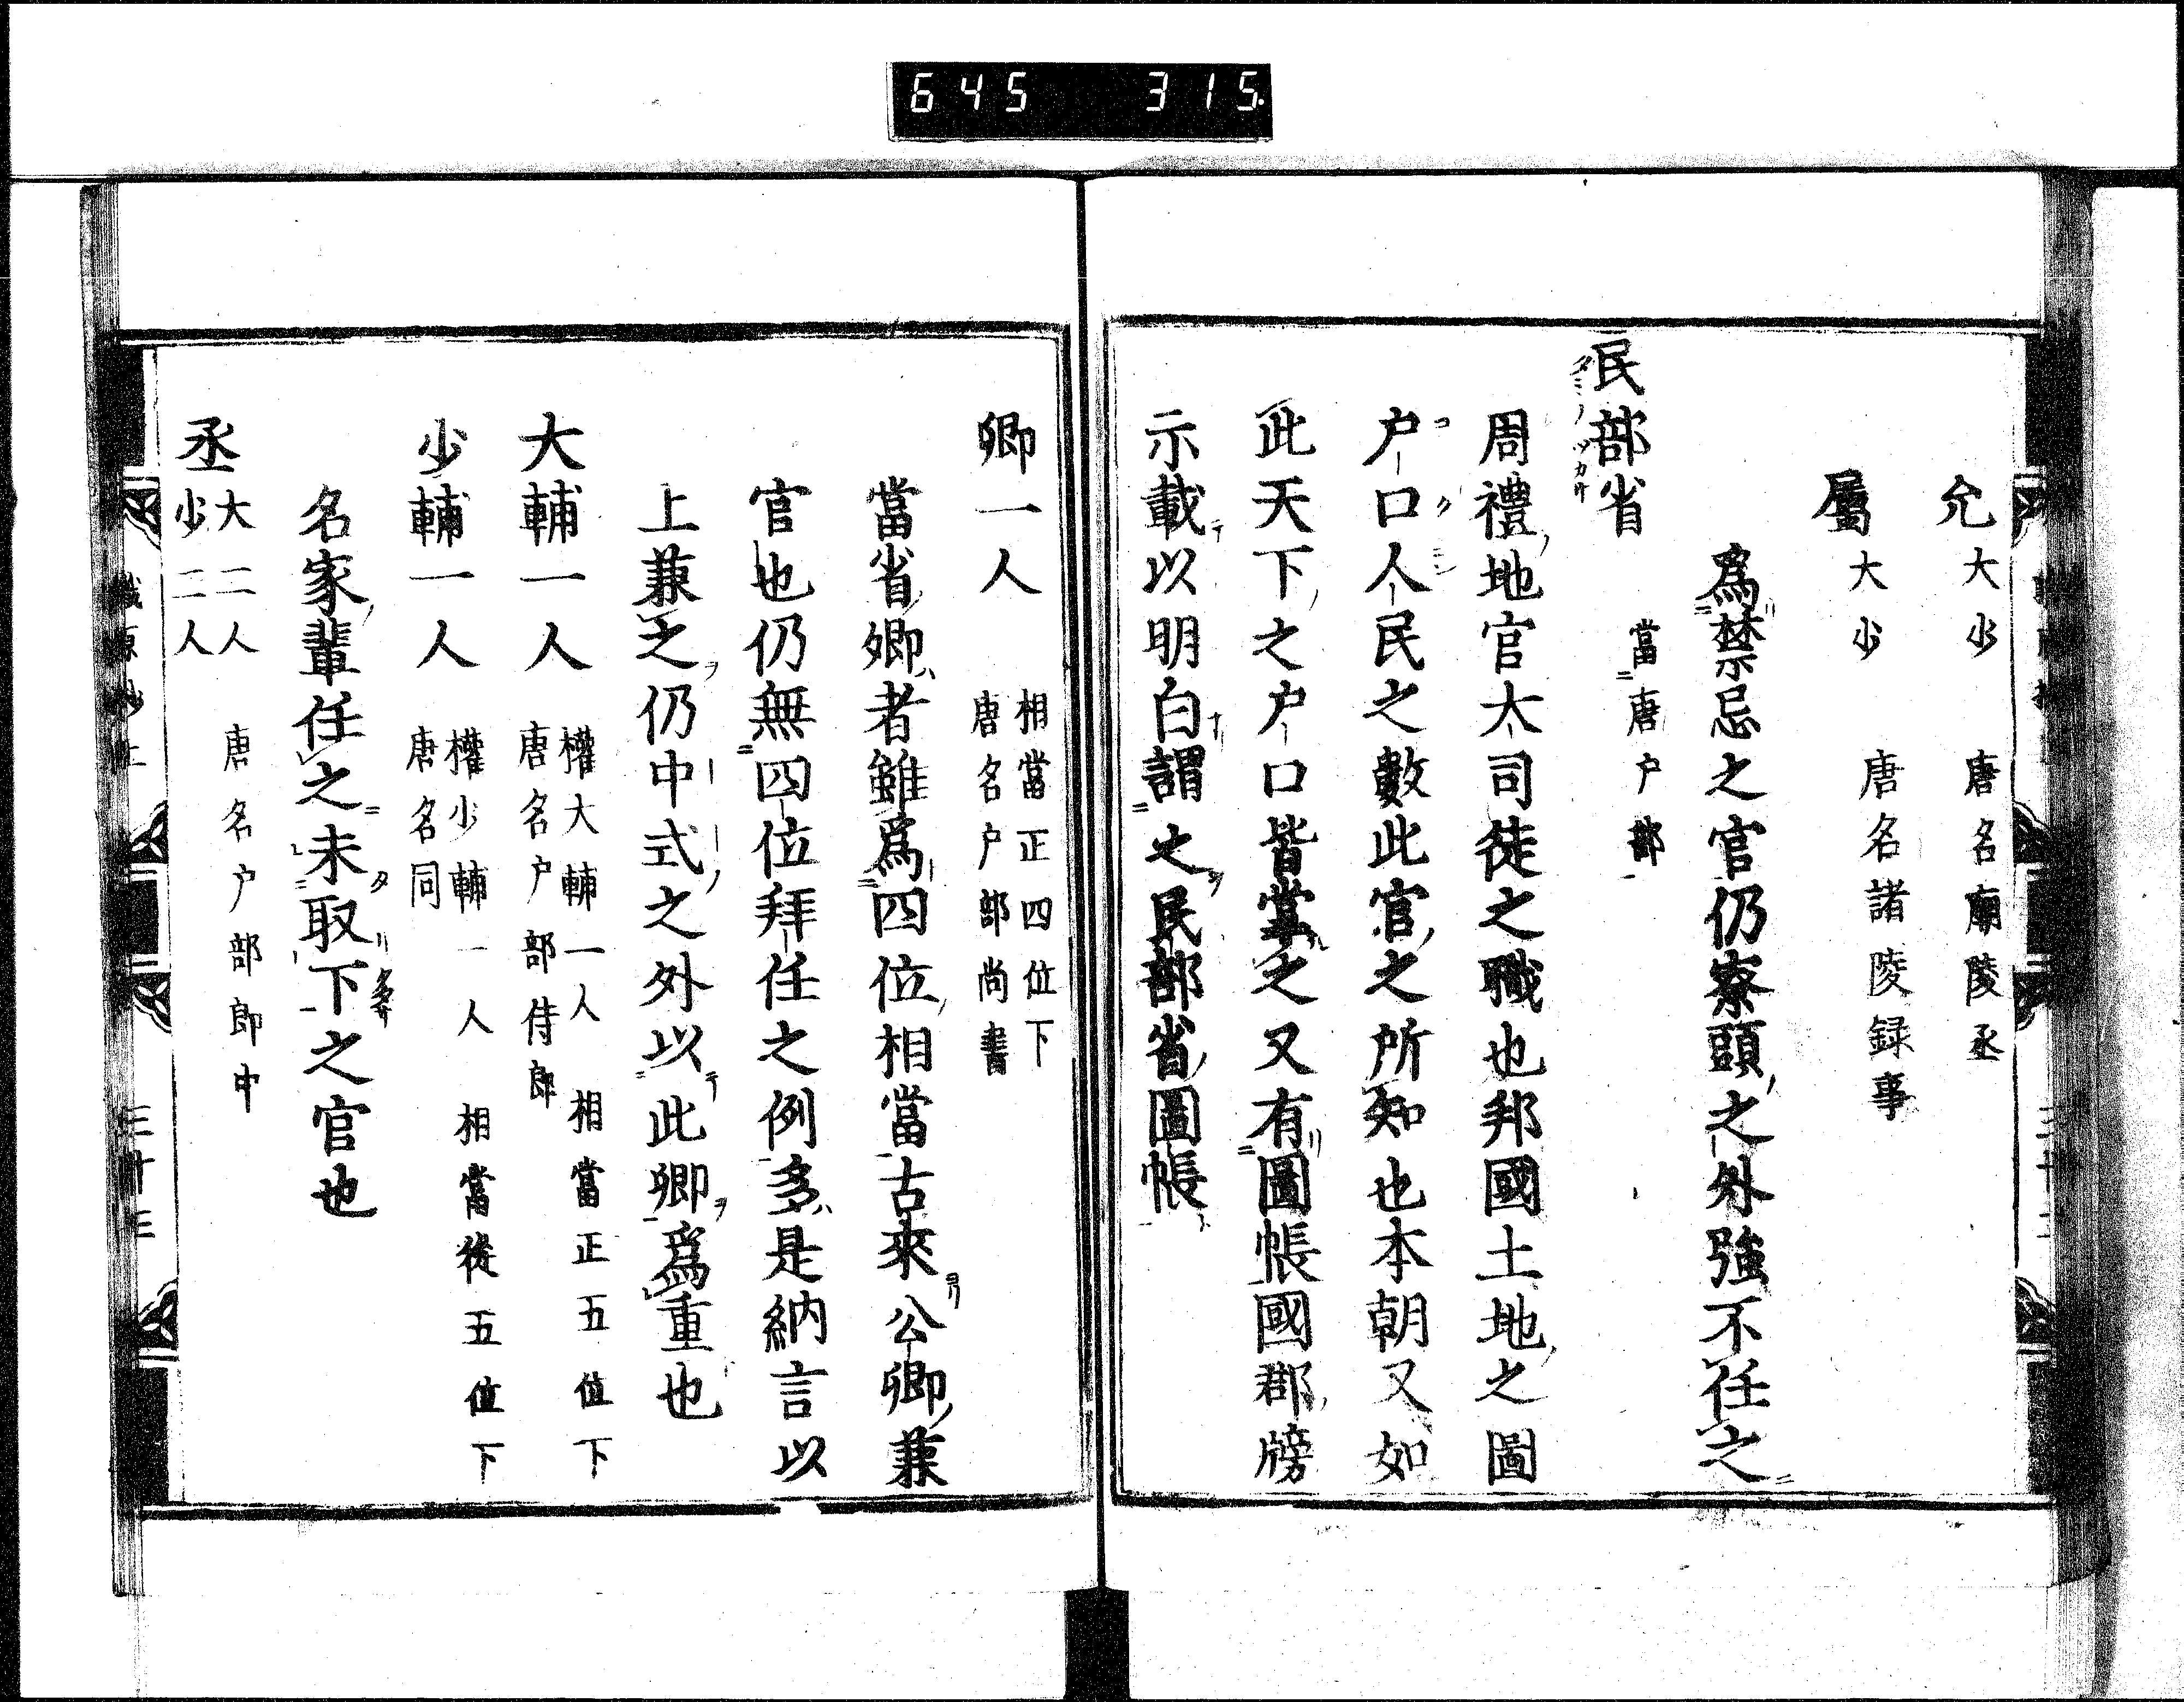 645 315
允 大少 唐名廟陵丞
屬 大少 唐名諸陵録事
爲禁忌之官仍寮頭之外強不任之
民部省 當唐户部
タミノツカサ
周禮地官大司徒之職也邦國土地之圖
户口人民之數此官之所知也本朝又如
此天下之户口皆掌之又有圖帳國郡牓
示載以明白謂之民部省圖帳
卿一人 相當正四位下
唐名户部尚書
當省卿者雖爲四位相當古來公卿兼
官也仍無四位拜任之例多是納言以
上兼之仍中式之外以此卿爲重也
大輔一人 權大輔一人 相當正五位下
唐名户部侍郎
少輔一人 權少輔一人 相當從五位下
唐名同
名家輩任之未取下之官也
丞 大二人 唐名户部郎中
少二人
職原抄上 三十三